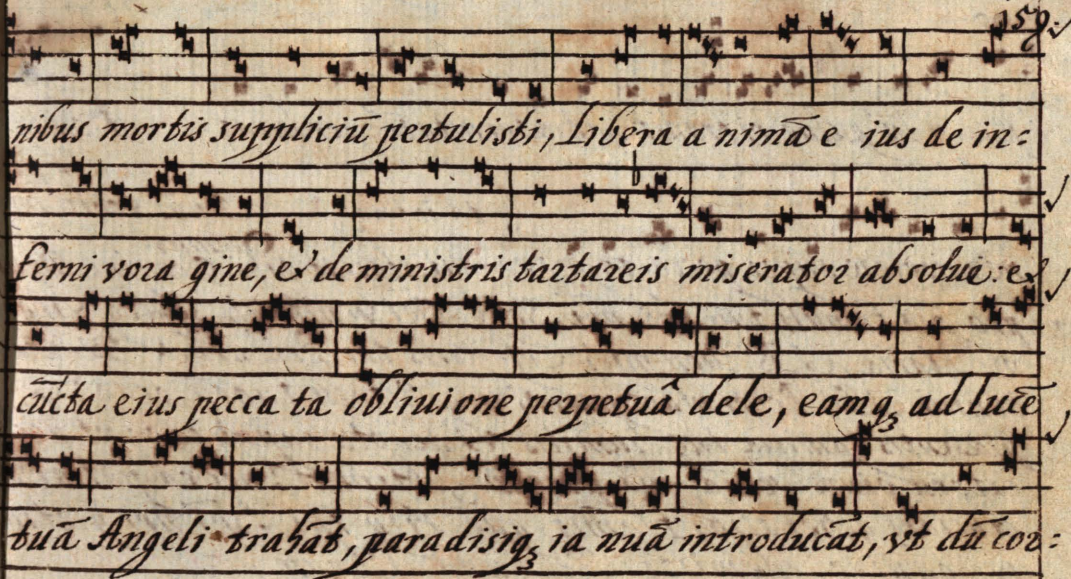 159.
nibus mortis suppliciū pertulisti, Libera a nimā e ius de in=
ferni vora gine, et de ministris tartareis miserator absolue: et
cūcta eius pecca ta obliuione perpetuâ dele, eamqꝫ ad lucē
tuā Angeli trahāt, paradisiqꝫ ia nuā introducāt, vt dū cor=